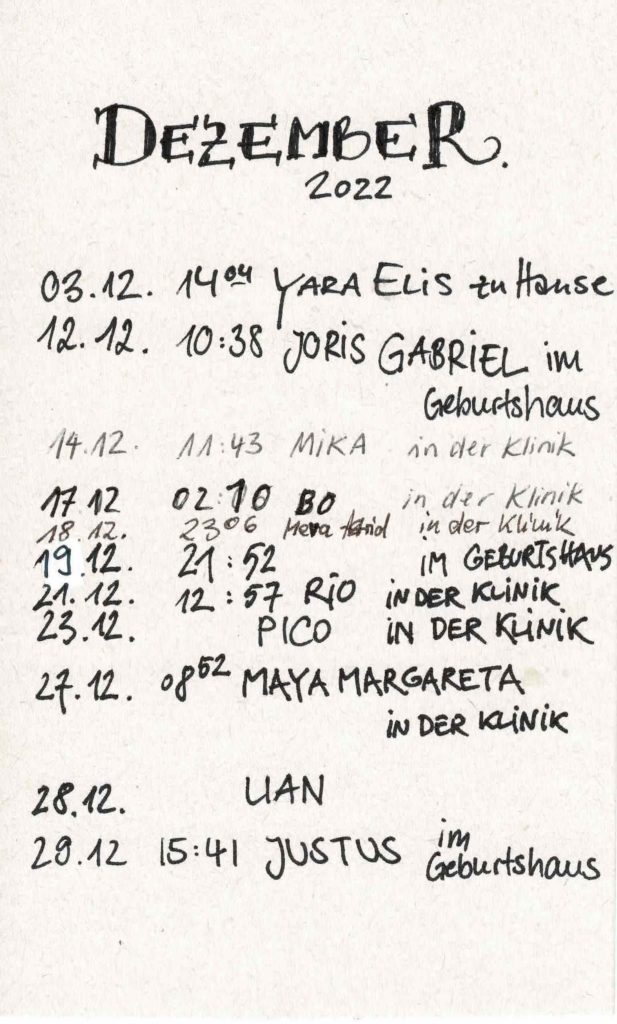 DEZEMBER.
2022
03.12. 14⁰⁴ YARA ELIS zu Hause
12.12. 10:38 JORIS GABRIEL im
Geburtshaus
14.12. 11:43 MIKA in der Klinik
17.12 02:10 BO in der Klinik
18.12. 23⁰⁶ in der Klinik
19.12. 21:52 IM GEBURTSHAUS
21.12. 12:57 RIO IN DER KLINIK
23.12. PICO IN DER KLINIK
27.12. 08⁵² MAYA MARGARETA
IN DER KLINIK
28.12. LIAN
29.12 15:41 JUSTUS im
Geburtshaus